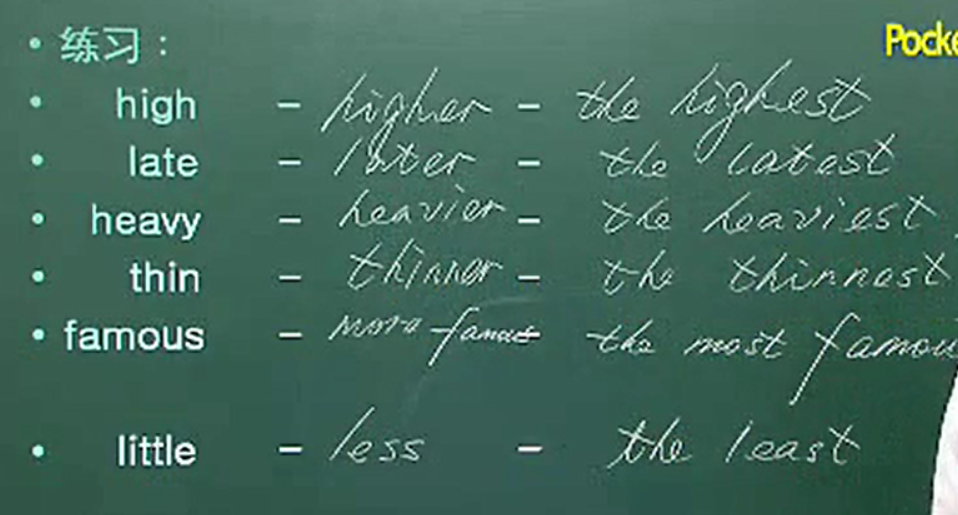 • 练习：
Pocke
• high - higher - the highest
• late - later - the latest
• heavy - heavier - the heaviest
• thin - thinner - the thinnest
• famous - more famous - the most famou
• little - less - the least